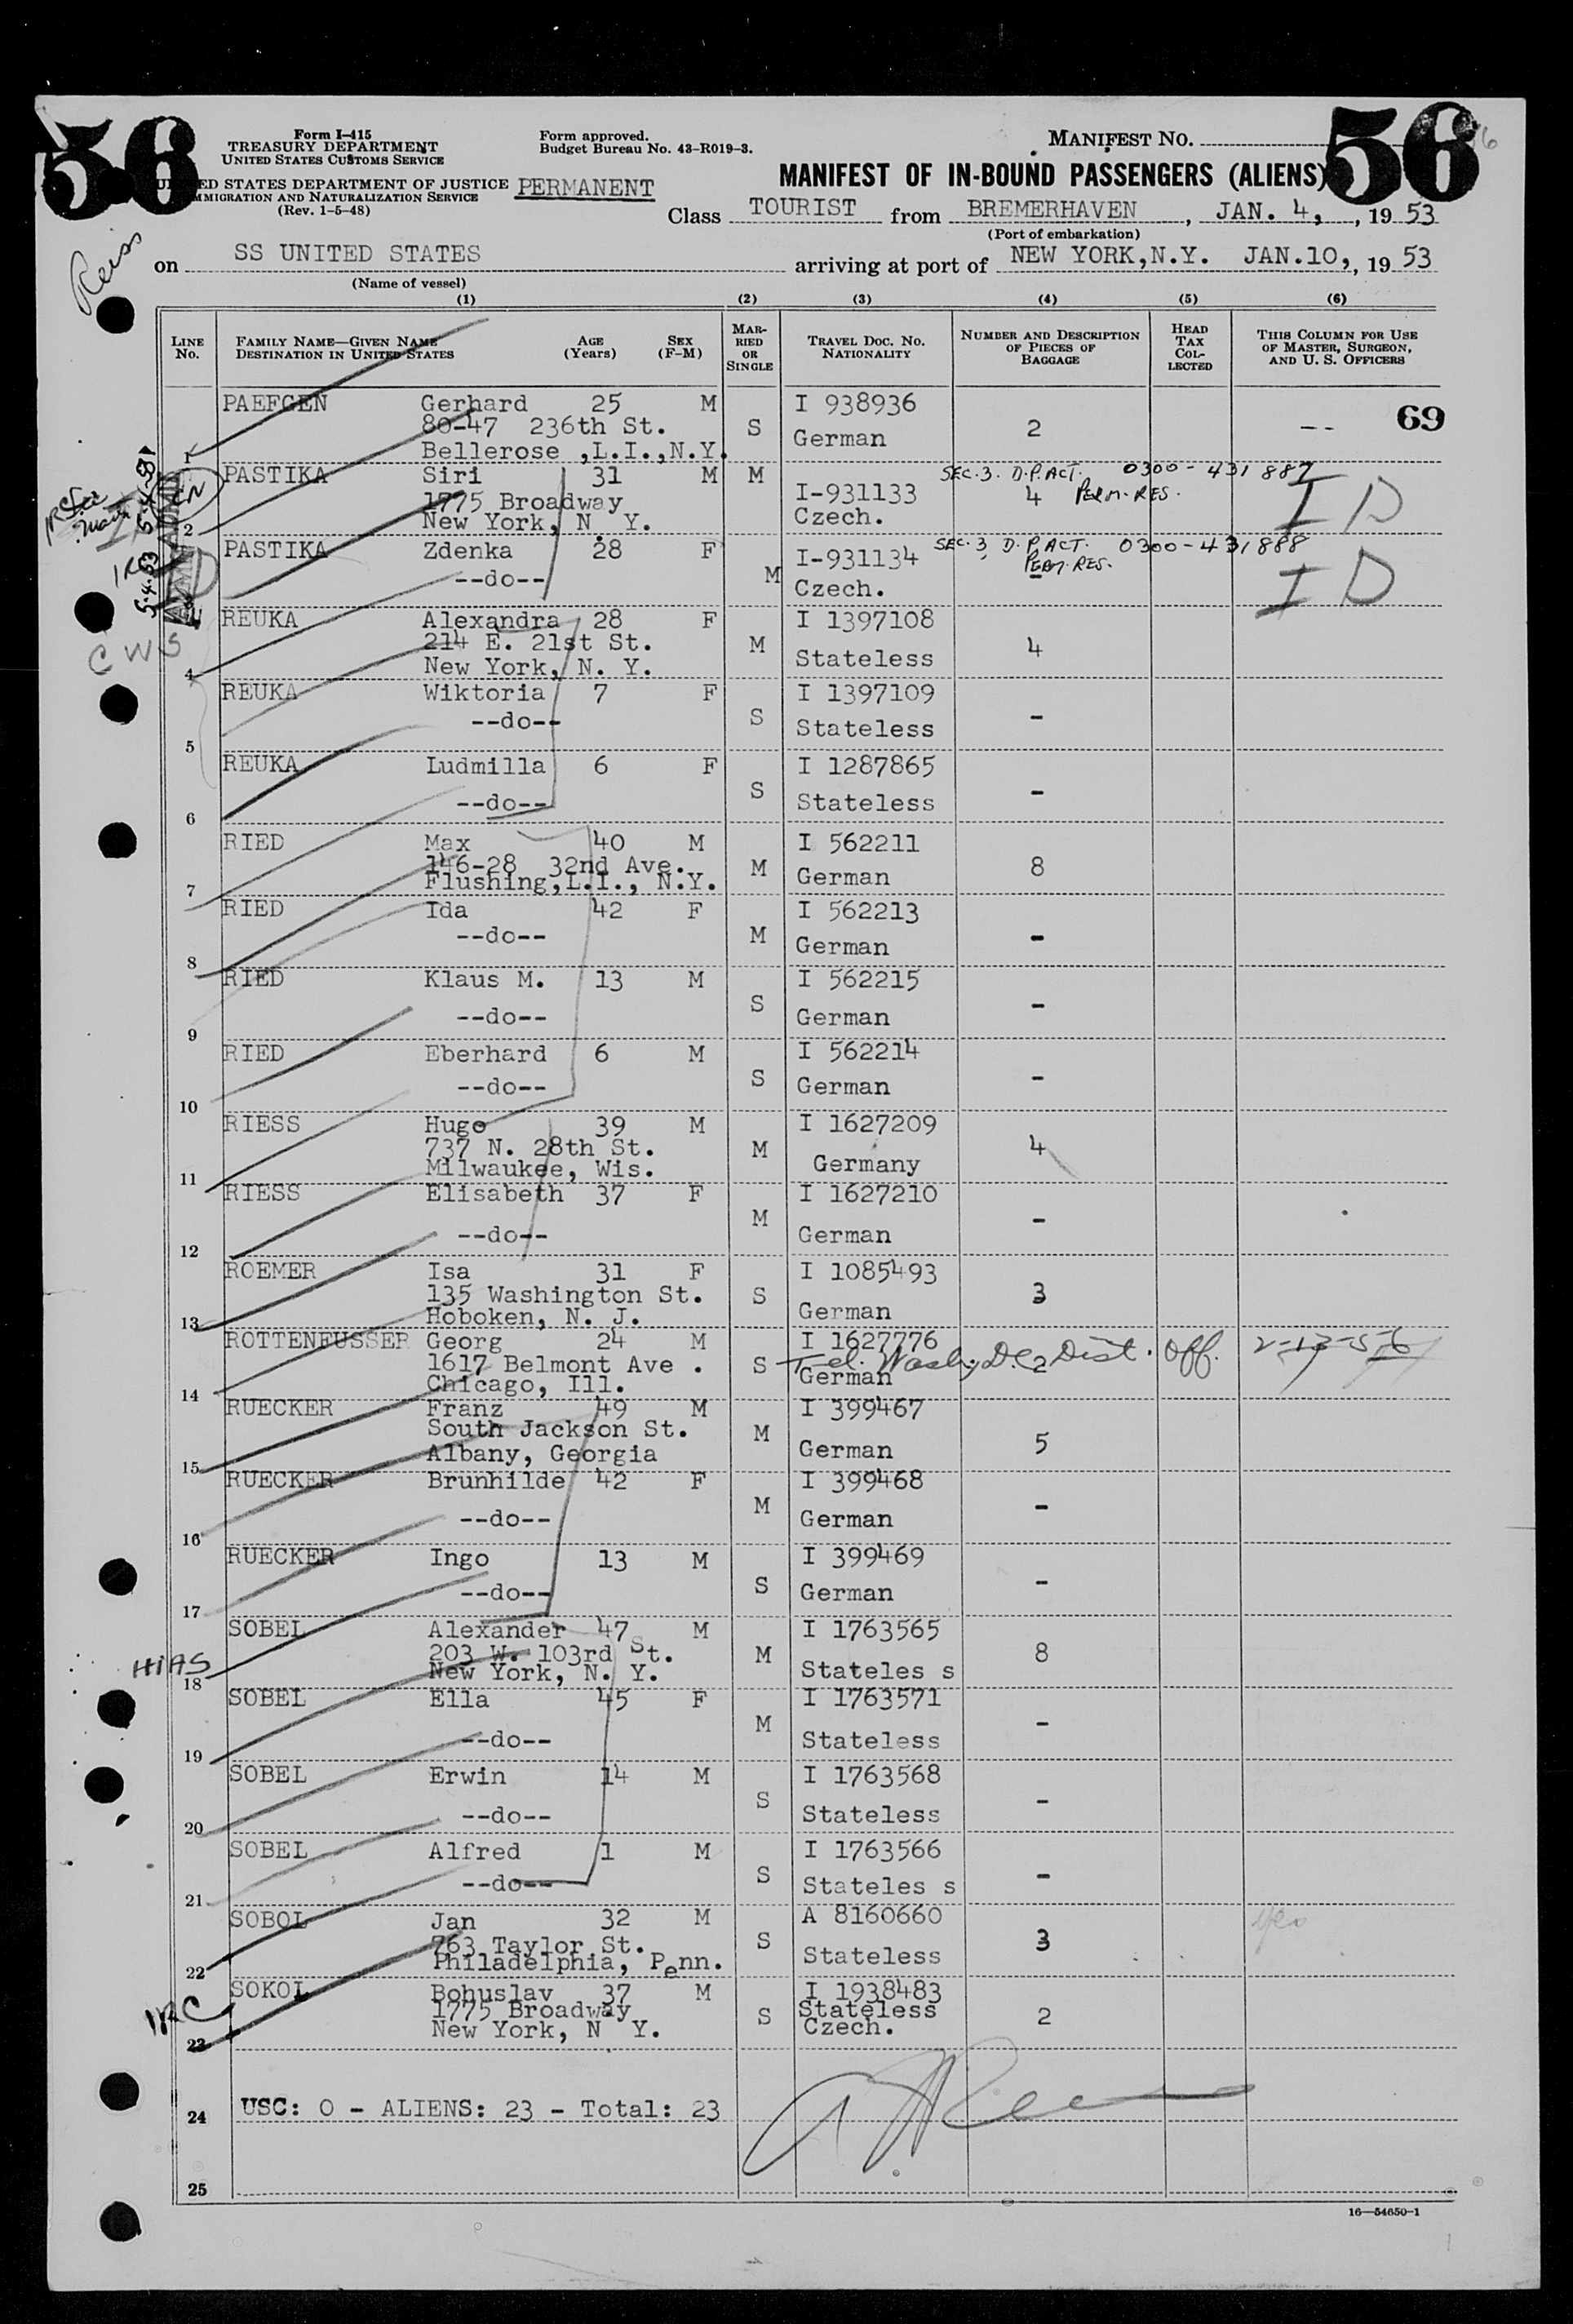 56
56
Form I-415
TREASURY DEPARTMENT
UNITED STATES CUSTOMS SERVICE
ED STATES DEPARTMENT OF JUSTICE
MMIGRATION AND NATURALIZATION SERVICE
(Rev. 1-5-48)
Form approved.
Budget Bureau No. 43-R019-3.
PERMANENT
MANIFEST No.
MANIFEST OF IN-BOUND PASSENGERS (ALIENS)
Class TOURIST from BREMERHAVEN, JAN. 4, , 19 53
(Port of embarkation)
Reiss
on SS UNITED STATES arriving at port of NEW YORK,N.Y. JAN.10, , 19 53
(Name of vessel)
(1) (2) (3) (4) (5) (6)
LINE No. FAMILY NAME—GIVEN NAME DESTINATION IN UNITED STATES AGE (Years) SEX (F-M) MARRIED OR SINGLE TRAVEL DOC. NO. NATIONALITY NUMBER AND DESCRIPTION OF PIECES OF BAGGAGE HEAD TAX COLLECTED THIS COLUMN FOR USE OF MASTER, SURGEON, AND U. S. OFFICERS
PAEFGEN Gerhard 25 M I 938936 69
80-47 236th St. S German 2 --
1 Bellerose ,L.I.,N.Y.
PASTIKA Siri 31 M M SEC. 3. D.P. ACT. 0300-431887
1775 Broadway I-931133 4 PERM. RES. I D
2 New York, N. Y. Czech.
PASTIKA Zdenka 28 F I-931134 SEC. 3 D.P. ACT. 0300-431888
--do-- M Czech. - PERM. RES. I D
REUKA Alexandra 28 F I 1397108
214 E. 21st St. M Stateless 4
CWS
4 New York, N. Y.
REUKA Wiktoria 7 F I 1397109
--do-- S Stateless -
5
REUKA Ludmilla 6 F I 1287865
--do-- S Stateless -
6
RIED Max 40 M I 562211
146-28 32nd Ave. M German 8
7 Flushing,L.I., N.Y.
RIED Ida 42 F I 562213
--do-- M German -
8
RIED Klaus M. 13 M I 562215
--do-- S German -
9
RIED Eberhard 6 M I 562214
--do-- S German -
10
RIESS Hugo 39 M I 1627209
737 N. 28th St. M Germany 4
11 Milwaukee, Wis.
RIESS Elisabeth 37 F I 1627210
--do-- M German -
12
ROEMER Isa 31 F I 1085493
135 Washington St. S German 3
13 Hoboken, N. J.
ROTTENFUSSER Georg 24 M I 1627776
1617 Belmont Ave . S German 2
Tel. Wash, D.C. Dist. Off. 2-13-56
14 Chicago, Ill.
RUECKER Franz 49 M I 399467
South Jackson St. M German 5
15 Albany, Georgia
RUECKER Brunhilde 42 F I 399468
--do-- M German -
16
RUECKER Ingo 13 M I 399469
--do-- S German -
17
SOBEL Alexander 47 M I 1763565
203 W. 103rd St. M Stateles s 8
HIAS
18 New York, N. Y.
SOBEL Ella 45 F I 1763571
--do-- M Stateless -
19
SOBEL Erwin 14 M I 1763568
--do-- S Stateless -
20
SOBEL Alfred 1 M I 1763566
--do-- S Stateles s -
21
SOBOL Jan 32 M A 8160660 yes
763 Taylor St. S Stateless 3
22 Philadelphia, Penn.
SOKOL Bohuslav 37 M I 1938483
IRC 1775 Broadway S Stateless 2
23 New York, N Y. Czech.
24 USC: 0 - ALIENS: 23 - Total: 23
25
16—54650-1